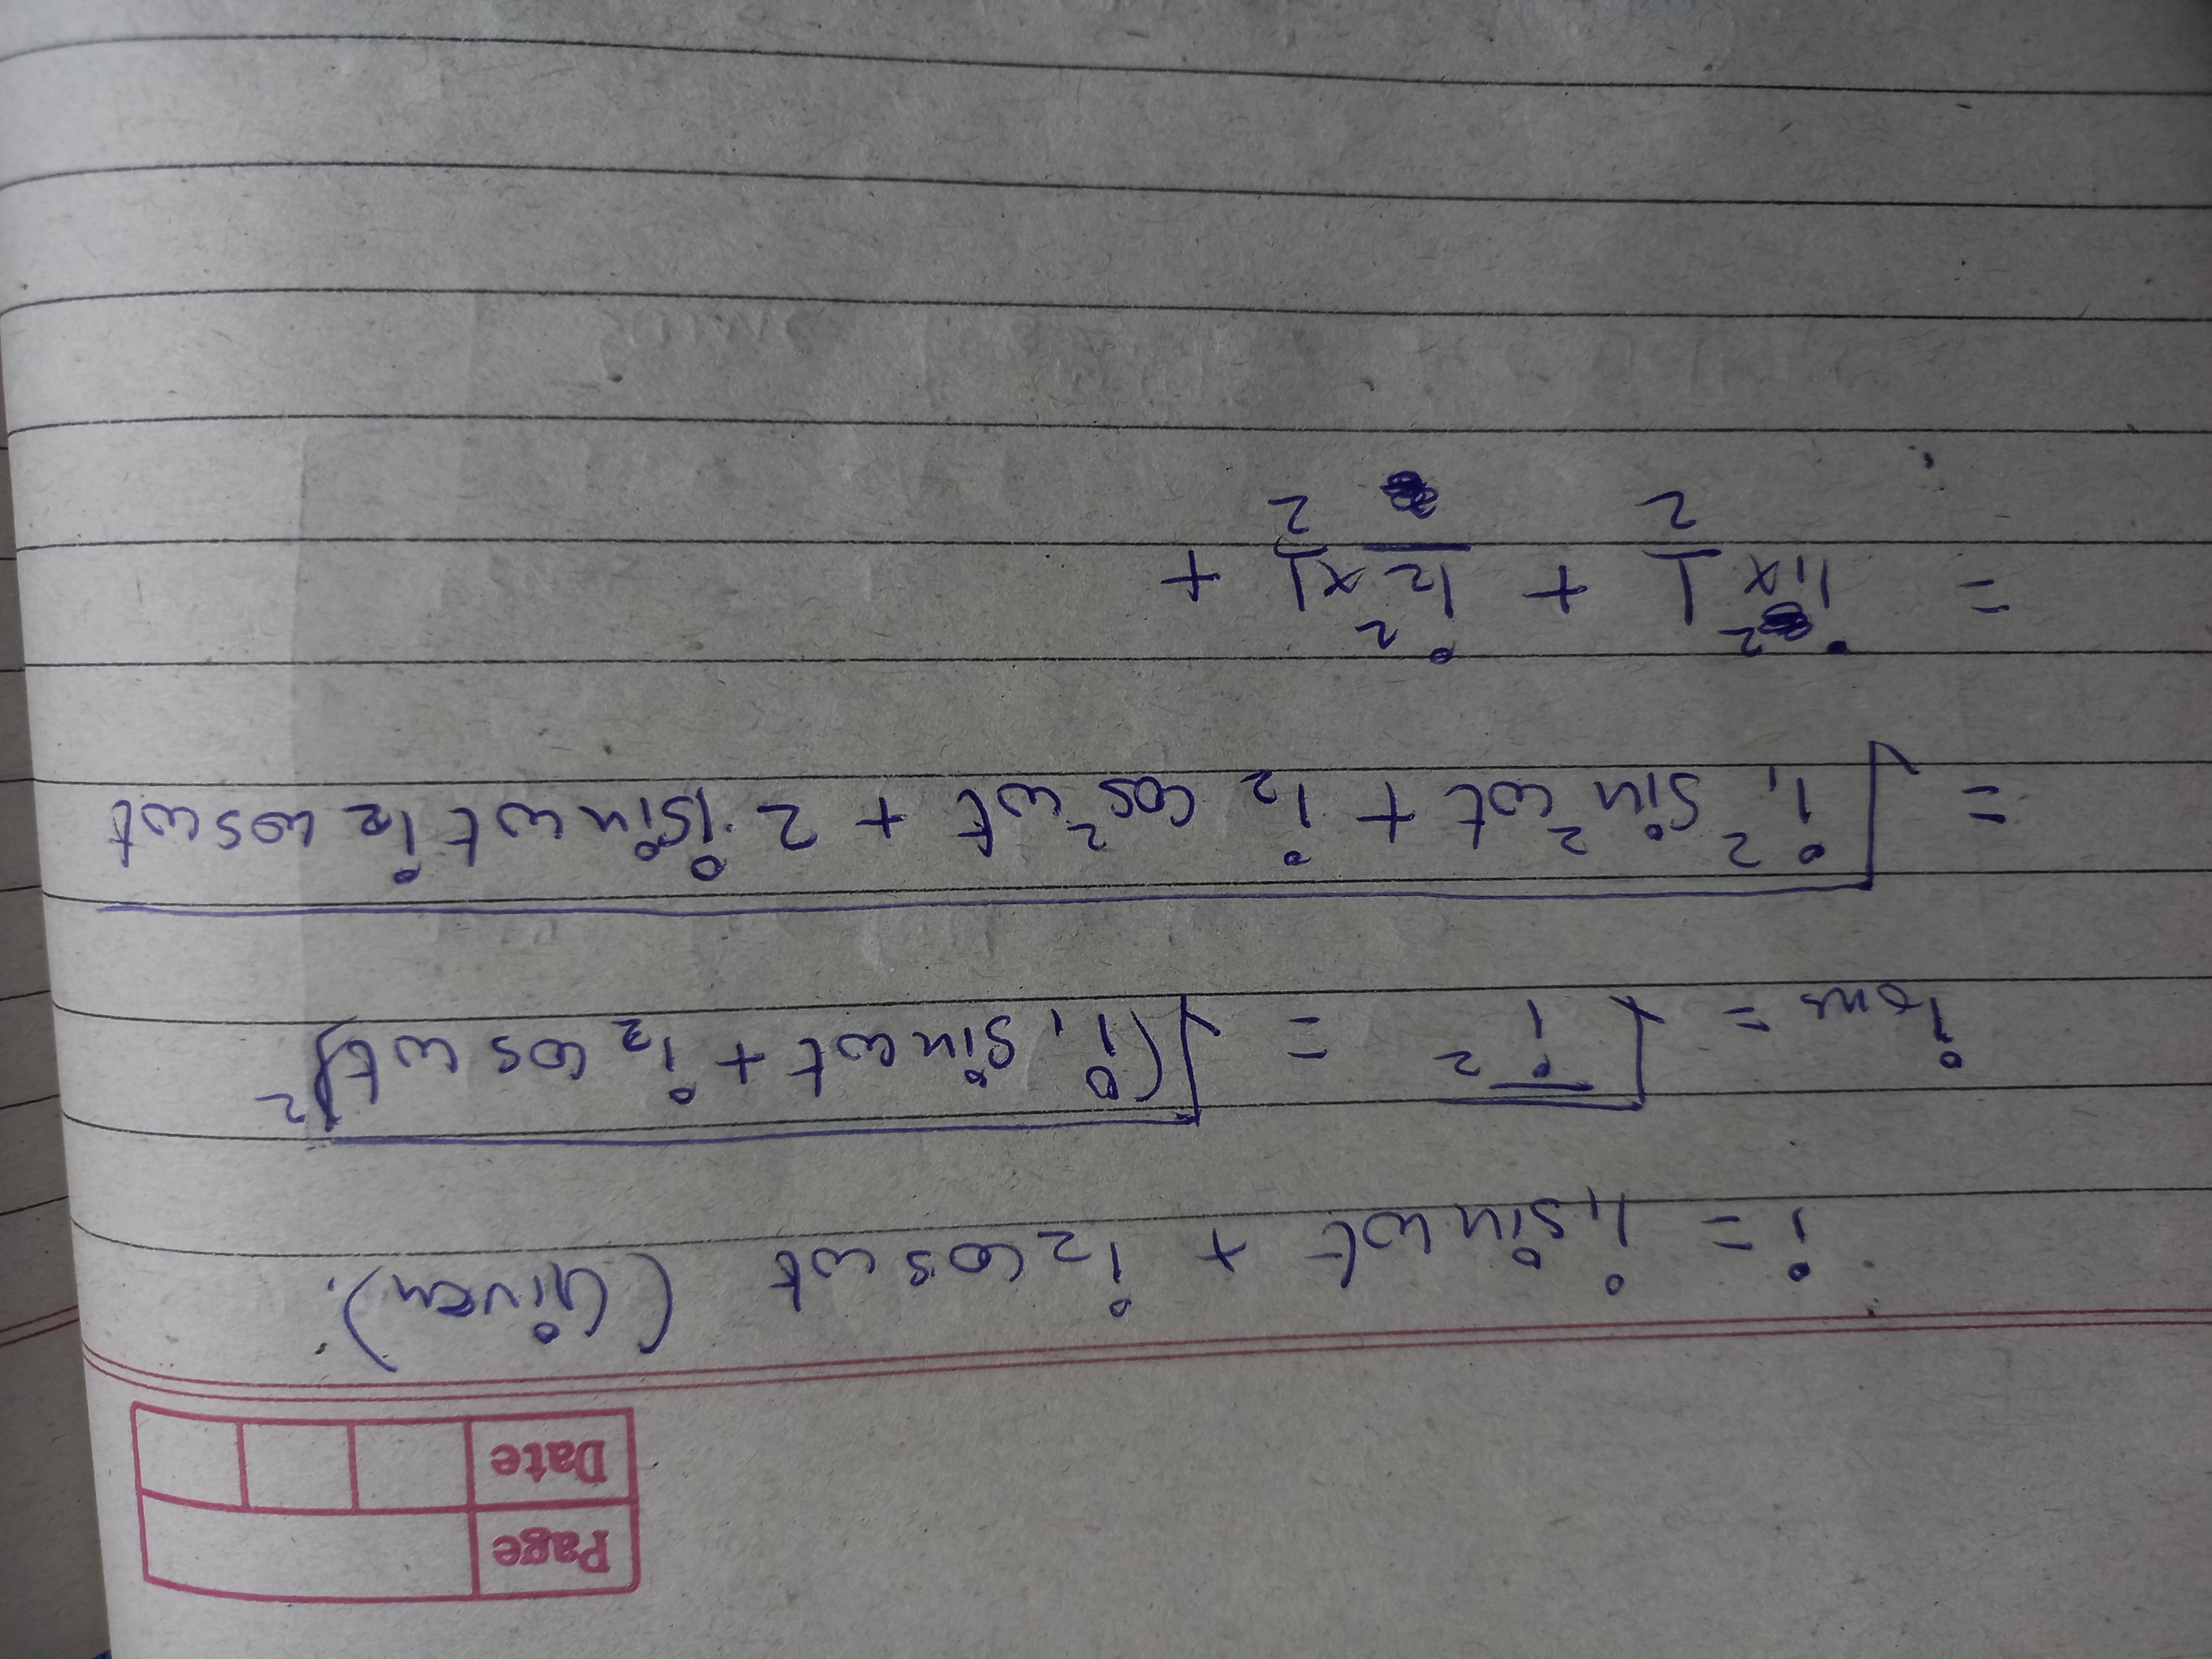 Page
Date
i = i₁sinωt + i₂cosωt (Given).
irms = √i̅² = √(i₁sinωt + i₂cosωt)²
= √i₁²sin²ωt + i₂cos²ωt + 2·isinωt i₂cosωt
= i₁²×1/2 + i₂²×1/2 +